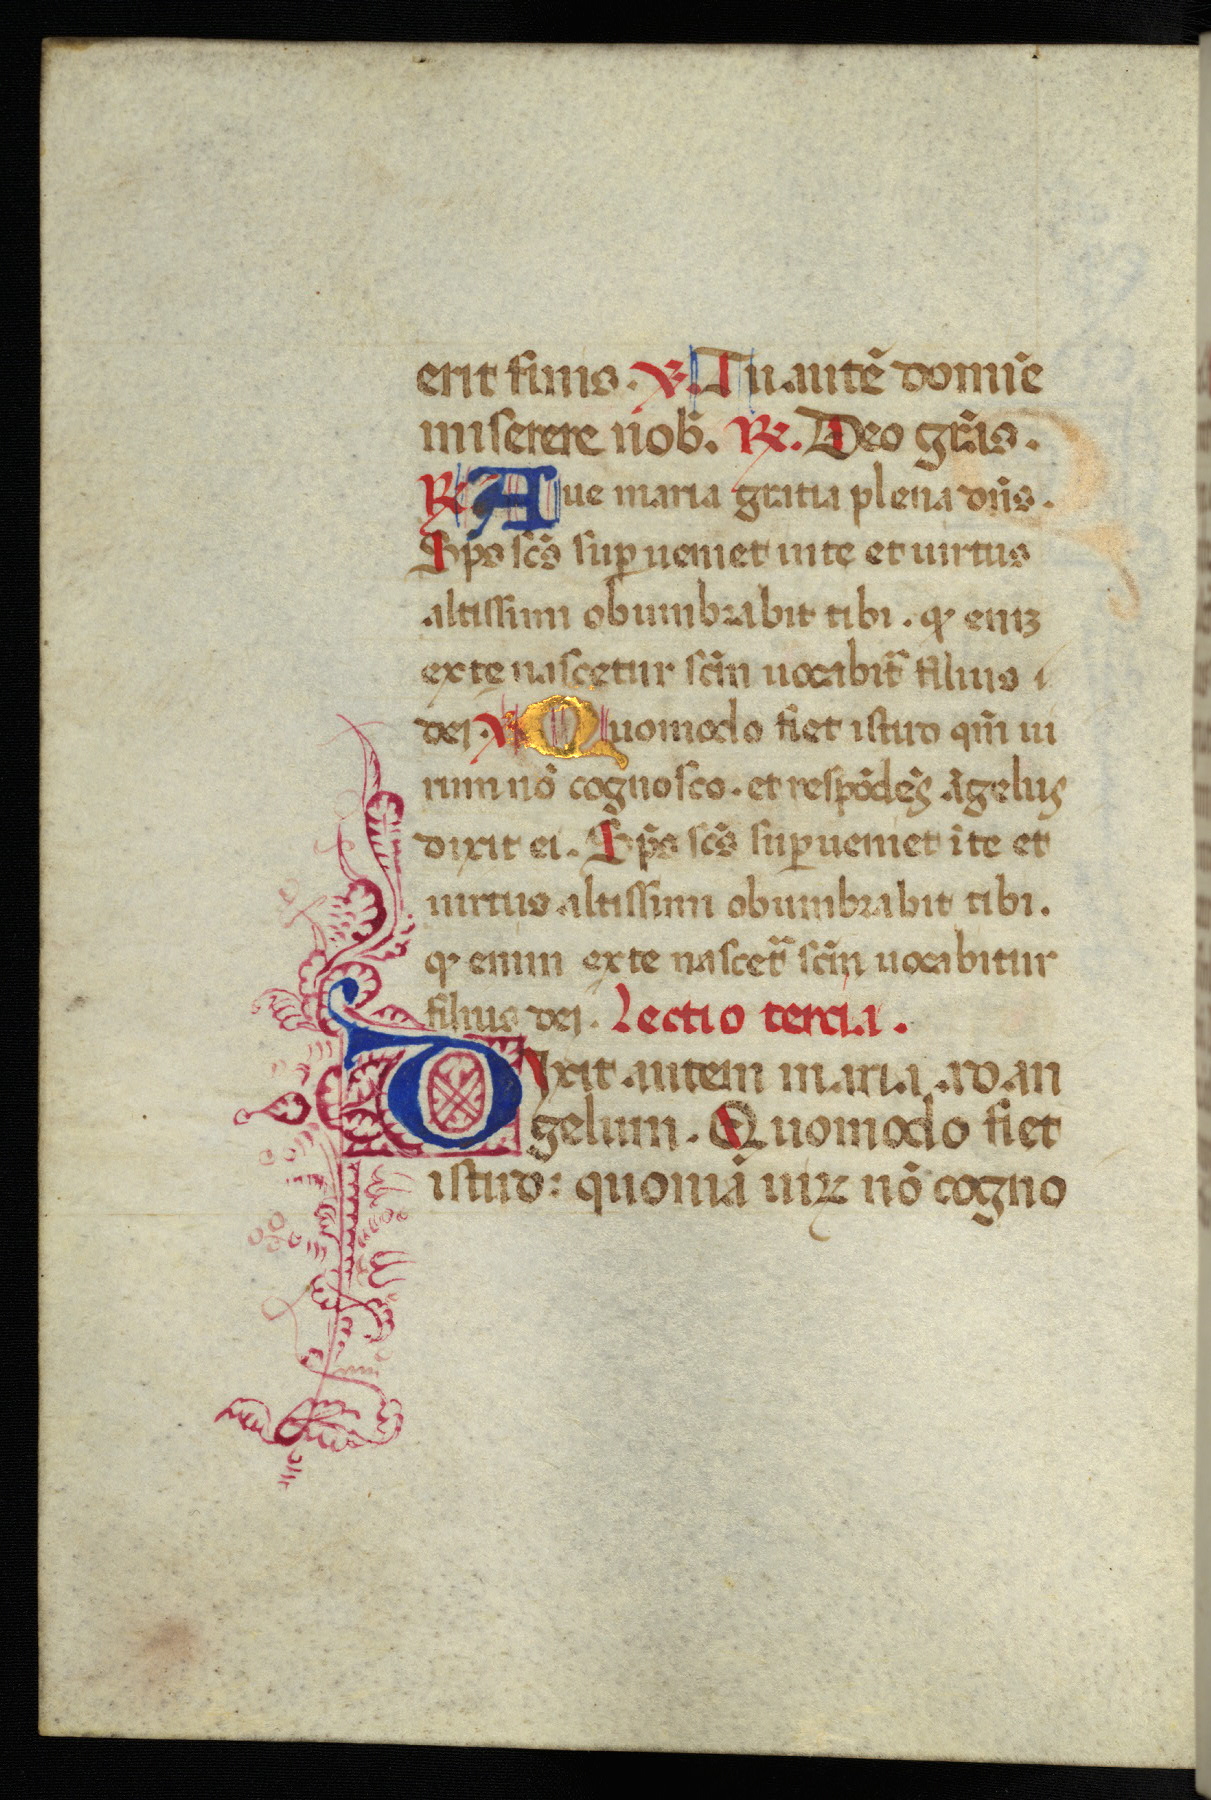 erit finis. ℣. Tu autē domīe
miserere nob̄. ℟. Deo gr̄as.
℟ Aue maria gratia plena dn̄s.
Sps sc̄s suꝑueniet inte et uirtus
altissimi obumbrabit tibi. qͥ eniꝫ
exte nascetur sc̄m uocabit̄ filius
dei. ℣ Quomodo fiet istud qm̄ ui
rum nō cognosco. et respōdēs āgelus
dixit ei. Sp̄s sc̄s suꝑueniet īte et
uirtus altissimi obumbrabit tibi.
qͥ enim exte nascet̄ sc̄m uocabitur
filius dei. Lectio tercia.
Dixit autem maria ad an
gelum. Quomodo fiet
istud: quoniā uiꝝ nō cogno